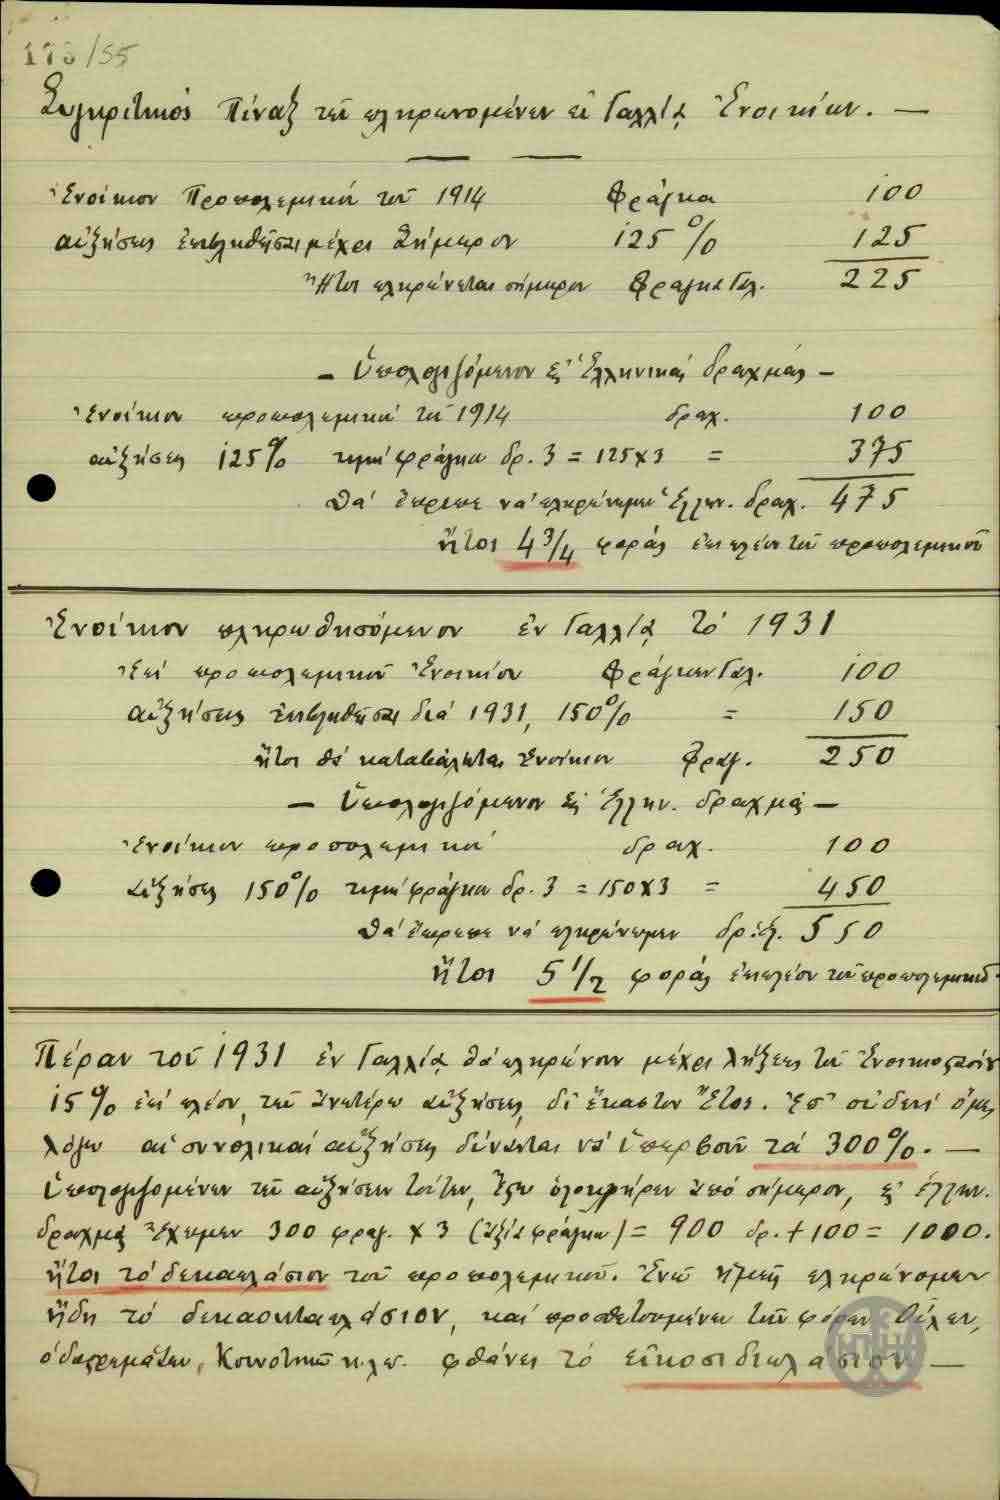 173/55
Συγκριτικός Πίναξ τῶν πληρωνομένων ἐν Γαλλίᾳ Ἐνοικίων. —
Ἐνοίκιον Προπολεμικόν τοῦ 1914 Φράγκα 100
αὐξήσεις ἐπιβληθεῖσαι μέχρι Σήμερον 125% 125
Ἤτοι πληρώνεται σήμερον Φράγκα Γαλ. 225
— Ὑπολογιζόμενον εἰς Ἑλληνικάς δραχμάς —
Ἐνοίκιον προπολεμικόν τοῦ 1914 δραχ. 100
αὐξήσεις 125% τιμή φράγκου δρ. 3 = 125x3 = 375
Θά ἔπρεπε νά πληρώνωμεν Ἑλλην. δραχ. 475
ἤτοι 4 3/4 φοράς ἐπί πλέον τοῦ προπολεμικοῦ
Ἐνοίκιον πληρωθησόμενον ἐν Γαλλίᾳ τό 1931
Ἐπί προπολεμικοῦ Ἐνοικίου Φράγκων Γαλ. 100
αὐξήσεις ἐπιβληθεῖσαι διά 1931, 150% = 150
ἤτοι θά καταβάλεται ἐνοίκιον Φραγ. 250
— Ὑπολογιζόμενον εἰς Ἑλλην. δραχμάς —
Ἐνοίκιον προπολεμικόν δραχ. 100
αὐξήσεις 150% τιμή φράγκου δρ. 3 = 150x3 = 450
Θά ἔπρεπε νά πληρώνωμεν δραχ. 550
ἤτοι 5 1/2 φοράς ἐπιπλέον τοῦ προπολεμικοῦ
Πέραν τοῦ 1931 ἐν Γαλλίᾳ θά πληρώνουν μέχρι λήξεως τοῦ Ἐνοικιοστασίου
15% ἐπί πλέον, τῶν ἀνωτέρω αὐξήσεων, δι' ἕκαστον Ἔτος. Ἐπ' οὐδενί ὅμως
λόγῳ αἱ συνολικαί αὐξήσεις δύνανται νά ὑπερβοῦν τά 300%. —
Ὑπολογιζομένων τῶν αὐξήσεων τούτων, Ἔξω ὁλοκλήρων ἀπό σήμερον, εἰς ἑλλην.
δραχμάς Ἔχωμεν 300 φραγ. x 3 (ἀξία φράγκου) = 900 δρ. + 100 = 1000.
ἤτοι τό δεκαπλάσιον τοῦ προπολεμικοῦ. Ἐνῶ ἡμεῖς πληρώνομεν
ἤδη τό δεκαοκταπλάσιον, καί προσθετουμένων τῶν φόρων Ὑδάτων,
ὁδοστρωμάτων, Κοινοτικῶν κ.λπ. φθάνει τό εἰκοσιδιπλάσιον —